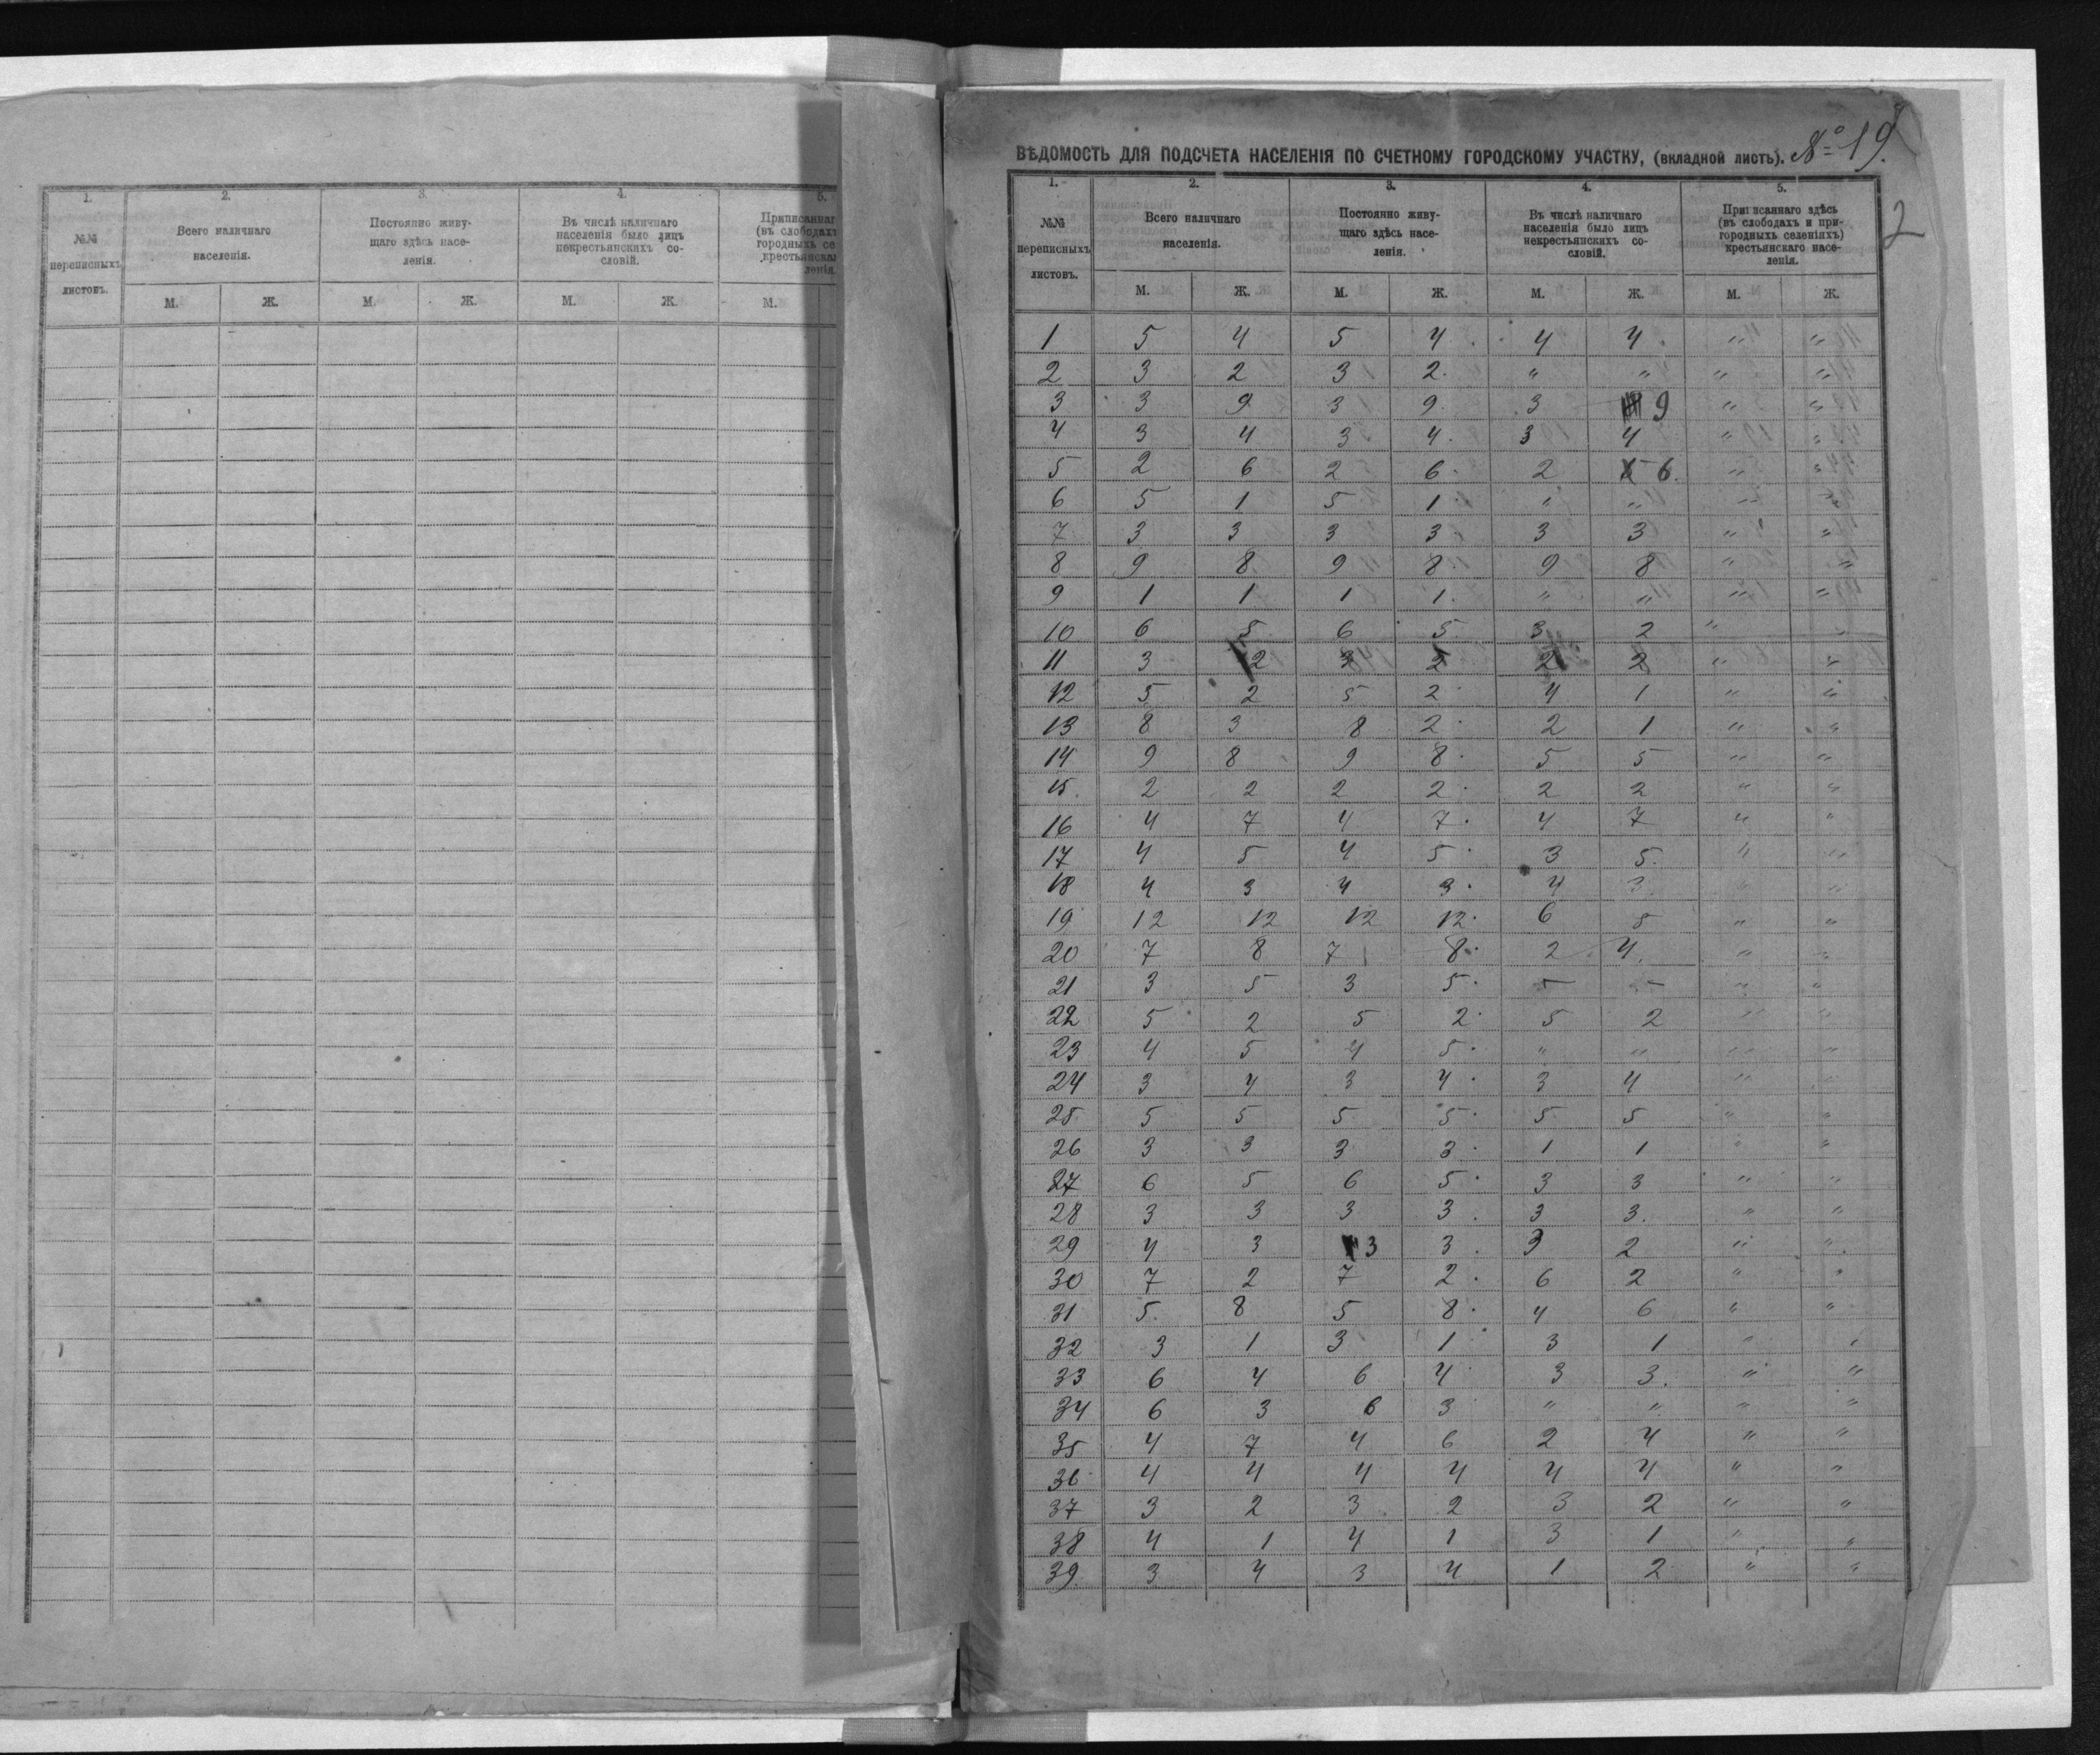 1. 2. 3. 4. 5.
№№ переписныхъ листовъ.
Всего наличнаго населенія.
Постоянно живущаго здѣсь населенія.
Въ числѣ наличнаго населенія было лицъ некрестьянскихъ сословій.
М. Ж. М. Ж. М. Ж. М.
ВѢДОМОСТЬ ДЛЯ ПОДСЧЕТА НАСЕЛЕНІЯ ПО СЧЕТНОМУ ГОРОДСКОМУ УЧАСТКУ, (вкладной листъ). № 19.
2
1. 2. 3. 4. 5.
№№ переписныхъ листовъ.
Всего наличнаго населенія.
Постоянно живущаго здѣсь населенія.
Въ числѣ наличнаго населенія было лицъ некрестьянскихъ сословій.
Приписаннаго здѣсь (въ слободахъ и пригородныхъ селеніяхъ) крестьянскаго населенія.
М. Ж. М. Ж. М. Ж. М. Ж.
1 5 4 5 4 4 4 " "
2 3 2 3 2 " " " "
3 3 9 3 9 3 9 " "
4 3 4 3 4 3 4 " "
5 2 6 2 6 2 6 " "
6 5 1 5 1 " " " "
7 3 3 3 3 3 3 " "
8 9 8 9 8 9 8 " "
9 1 1 1 1 " " " "
10 6 5 6 5 3 2 " "
11 3 2 3 2 2 2 " "
12 5 2 5 2 4 1 " "
13 8 3 8 2 2 1 " "
14 9 8 9 8 5 5 " "
15 2 2 2 2 2 2 " "
16 4 7 4 7 4 7 " "
17 4 5 4 5 3 5 " "
18 4 3 4 3 4 3 " "
19 12 12 12 12 6 8 " "
20 7 8 7 8 2 4 " "
21 3 5 3 5 - - " "
22 5 2 5 2 5 2 " "
23 4 5 4 5 " " " "
24 3 4 3 4 3 4 " "
25 5 5 5 5 5 5 " "
26 3 3 3 3 1 1 " "
27 6 5 6 5 3 3 " "
28 3 3 3 3 3 3 " "
29 4 3 3 3 3 2 " "
30 7 2 7 2 6 2 " "
31 5 8 5 8 4 6 " "
32 3 1 3 1 3 1 " "
33 6 4 6 4 3 3 " "
34 6 3 6 3 " " " "
35 4 7 4 6 2 4 " "
36 4 4 4 4 4 4 " "
37 3 2 3 2 3 2 " "
38 4 1 4 1 3 1 " "
39 3 4 3 4 1 2 " "